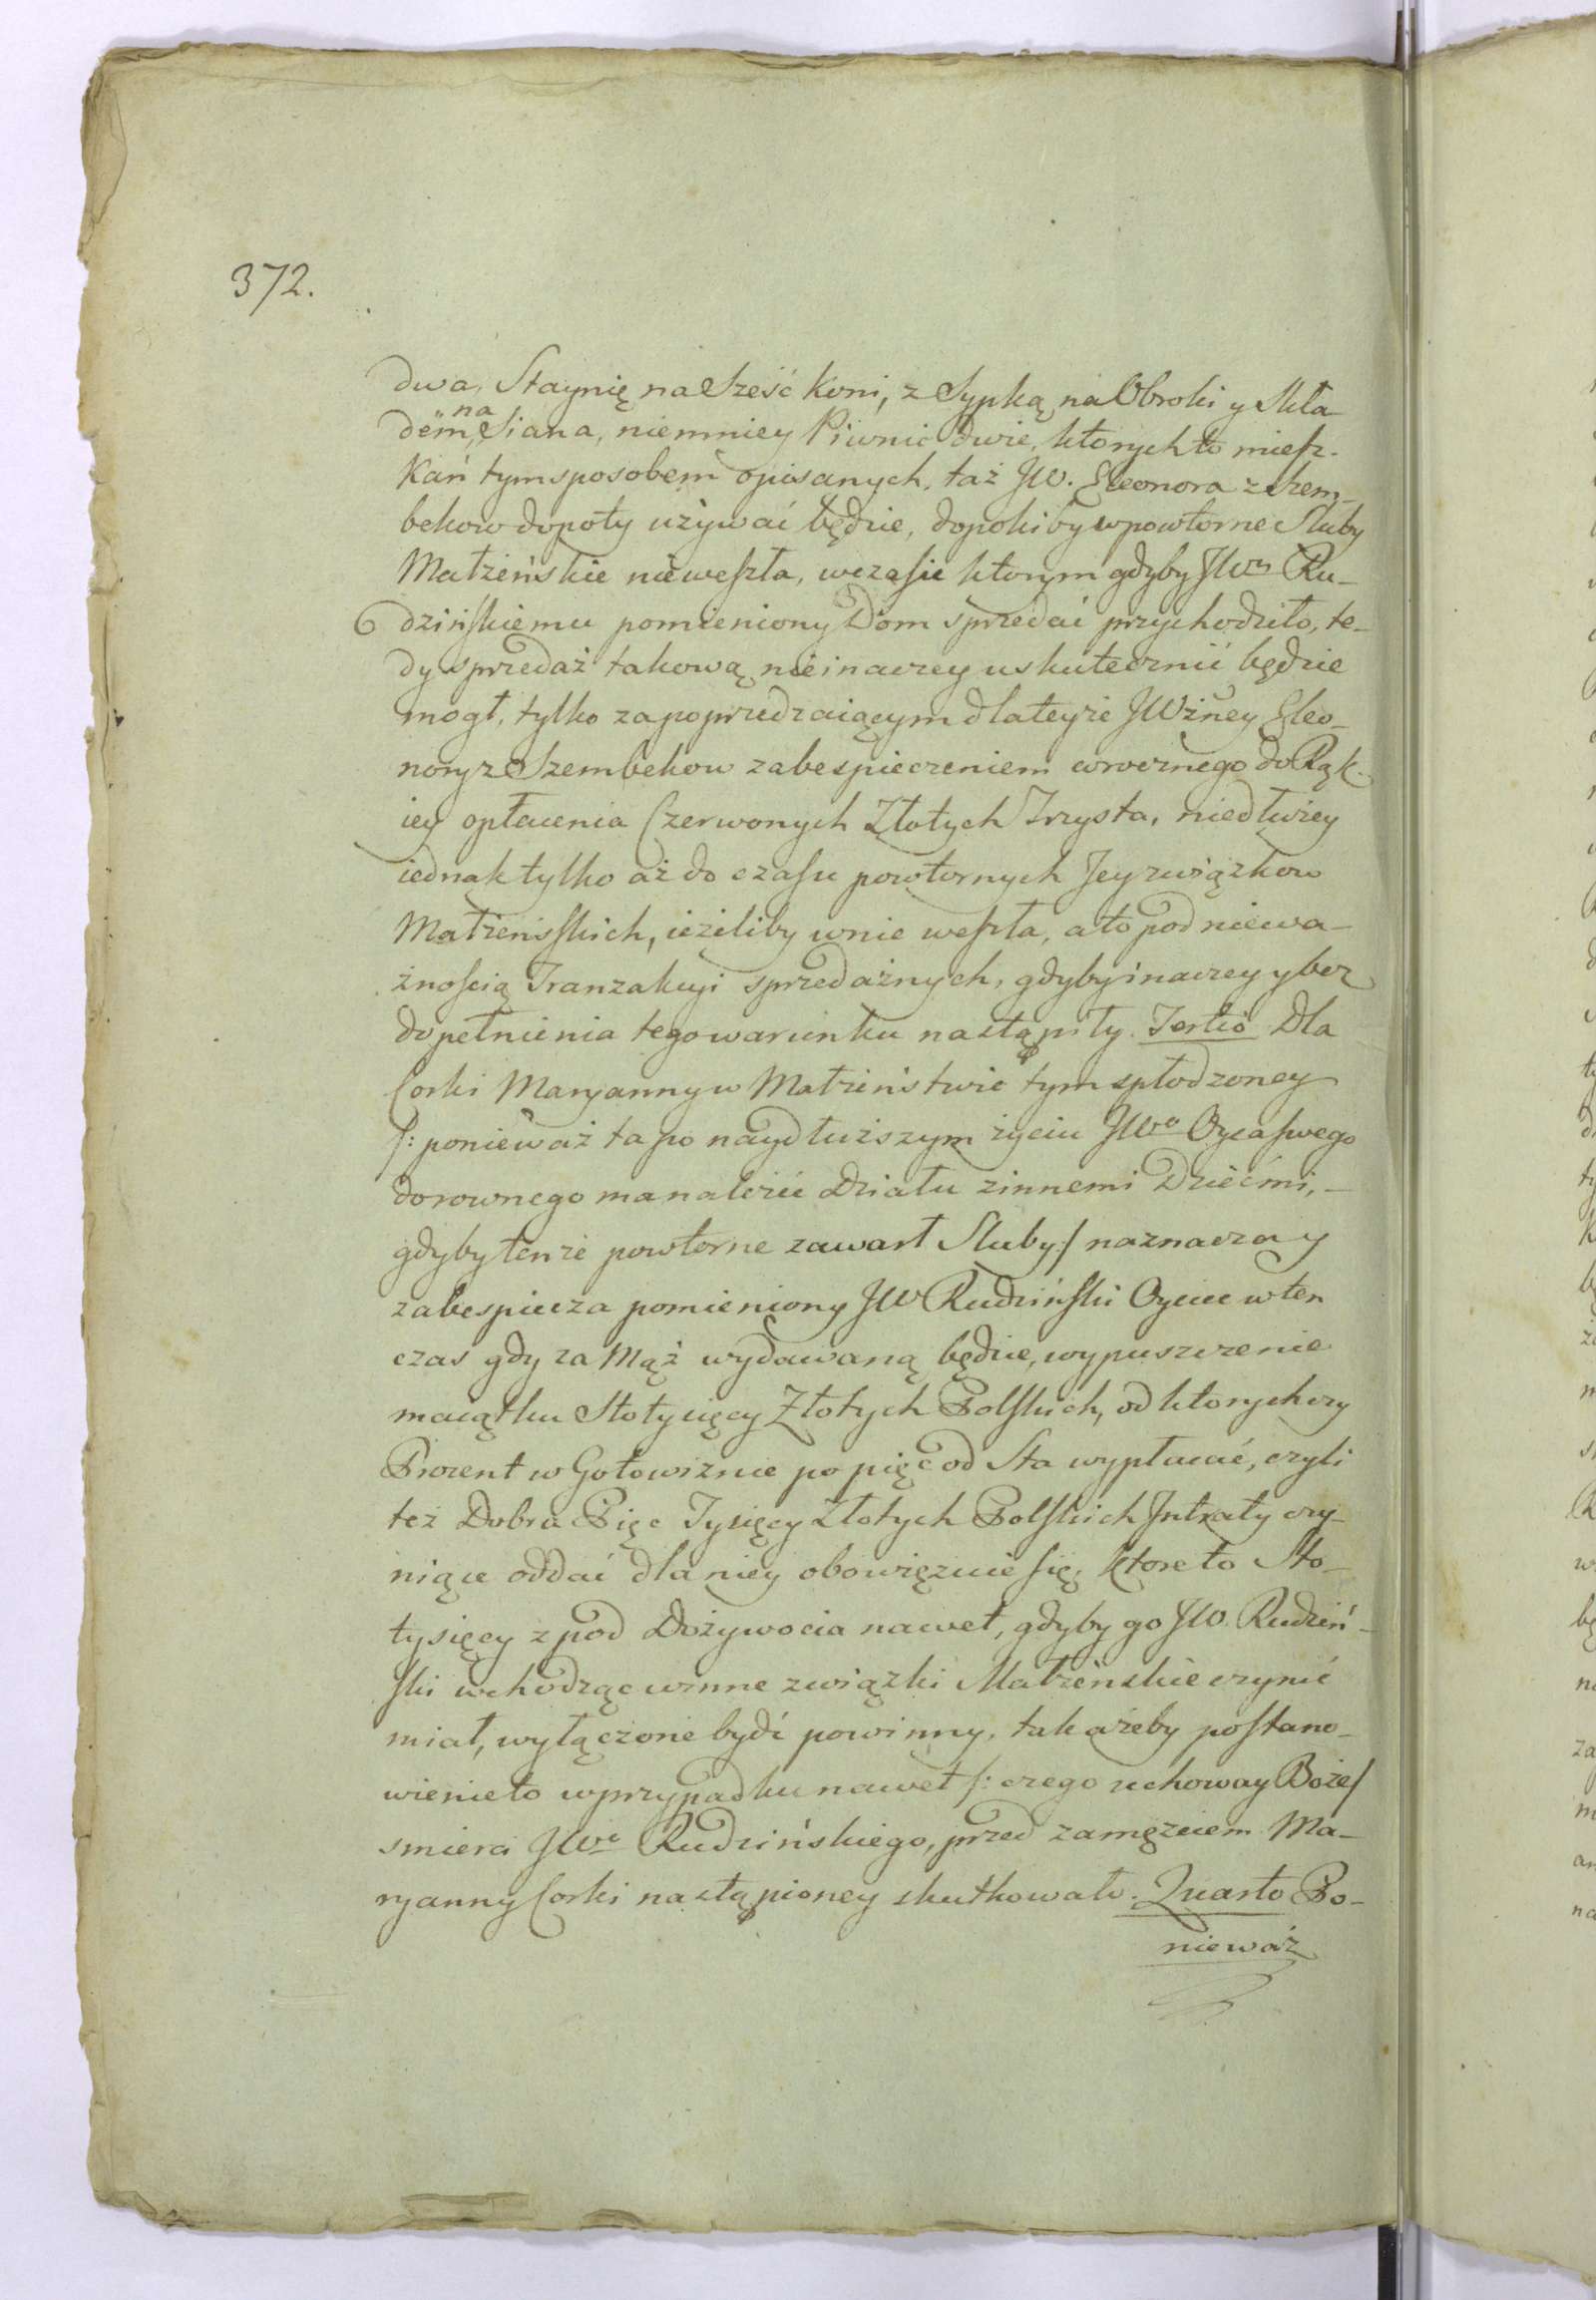 372.
dwa, Staynię na Sześć Koni, z Sypką na Obroki y Skła
dem na Siana, niemniey Piwnic dwie, ktorych to miesz-
kań tym sposobem opisanych, taż JW. Eleonora z Szem-
bekow dopoty używać będzie, dopokiby w powtorne Sluby
Matżeńskie nie weszła, w czasie ktorym gdyby JWmu Ru-
dzińskiemu pomieniony Dom sprzedać przychodziło, te-
dy sprzedaż takową nie inaczey uskutecznić będzie
mogł, tylko za poprzedzaiącym dla teyże JWżney Eleo-
nory z Szembekow zabespieczeniem corocznego do Rąk
iey opłacenia Czerwonych Złotych Trzysta, niedłużey
iednak tylko aż do czasu powtornych Jey związkow
Matżeńskich, ieżeliby w nie weszła, a to pod niewa-
żnością Tranzakcyi sprzedażnych, gdyby inaczey y bez
dopełnienia tego warunku nastąpiły. Tertio Dla
Corki Maryanny w Matżeństwie tym spłodzoney
/: ponieważ ta po naydłuższym życiu JWo Oyca swego
do rownego ma należeć Działu z innemi Dziećmi,
gdyby tenże powtorne zawarł Sluby :/ naznacza y
zabespiecza pomieniony JW Rudziński Oyciec w ten
czas gdy za Mąż wydawaną będzie, wypuszczenie
maiątku Sto tysięcy Złotych Polskich, od ktorych czy
Procent w Gotowiznie po pięć od Sta wypłacać, czyli
też Dobra Pięc Tysięcy Złotych Polskich Intraty czy-
niące oddać dla niey obowięzuie się, ktore to Sto-
tysięcy z pod Dożywocia nawet, gdyby go JW. Rudziń-
ski wchodząc w inne związki Matżenskie czynić
miał, wyłączone bydź powinny, tak ażeby postano-
wienie to w przypadku nawet /: czego uchoway Boże /
smierci JWo Rudzińskiego, przed zamęzciem Ma-
ryanny Corki nastąpioney skutkowało. Quarto Po-
nieważ